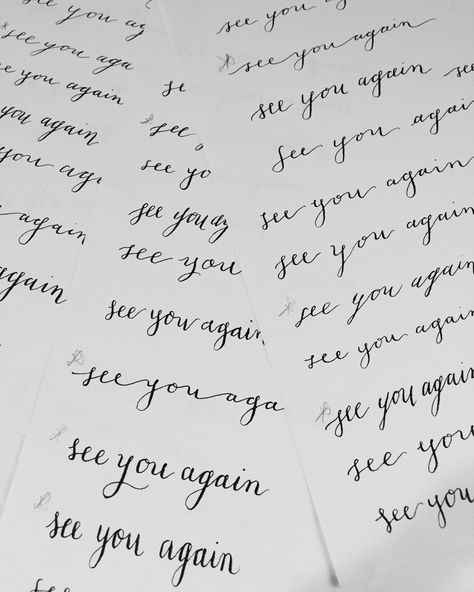 see you ag
see you aga
see you again
you again
you aga
again
again
se
see
see yo
see you ag
see you
see you again
see you aga
see you again
see you again
see
see you aga
see you again
see you again see
see you again
see you again
see you again
see you again
see you again
see you again
see you
see you